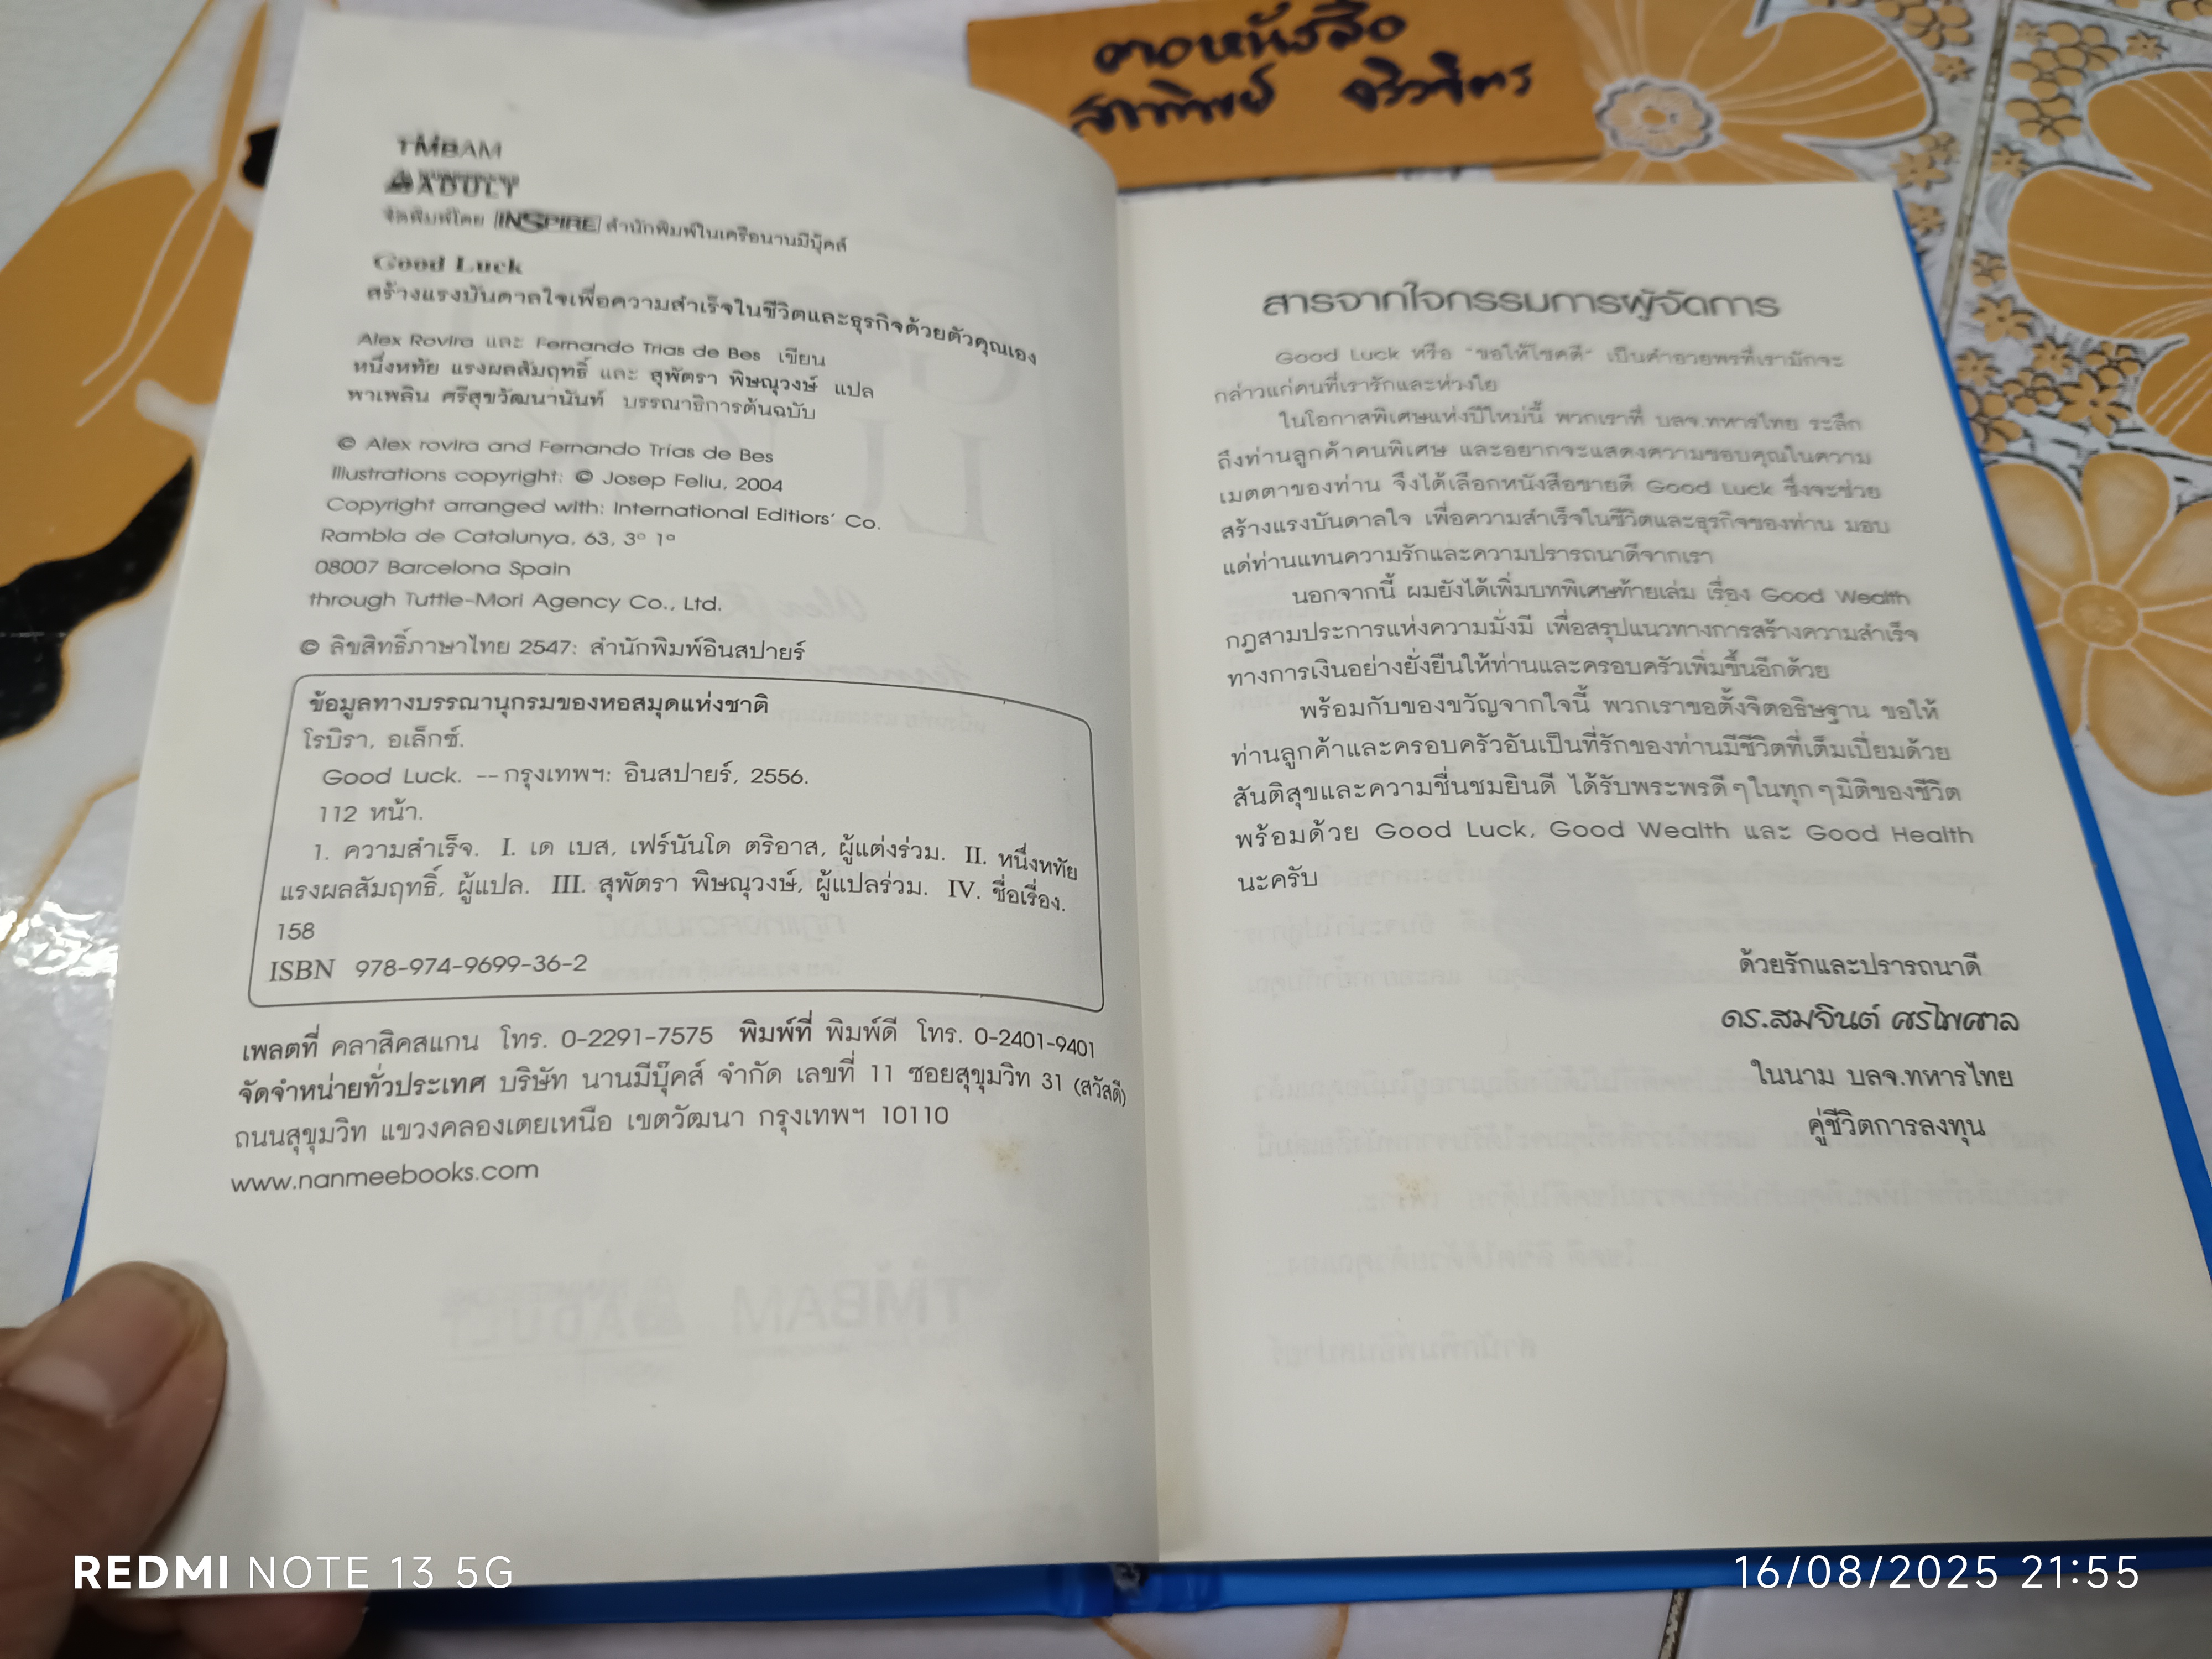 TMBAM
จัดพิมพ์โดย INSPIRE สำนักพิมพ์ในเครือนานมีบุ๊คส์
Good Luck
สร้างแรงบันดาลใจเพื่อความสำเร็จในชีวิตและธุรกิจด้วยตัวคุณเอง
Alex Rovira และ Fernando Trias de Bes เขียน
หนึ่งหทัย แรงผลสัมฤทธิ์ และ สุพัตรา พิษณุวงษ์ แปล
พาเพลิน ศรีสุขวัฒนานันท์ บรรณาธิการต้นฉบับ
© Alex rovira and Fernando Trias de Bes
Illustrations copyright: © Josep Feliu, 2004
Copyright arranged with: International Editiors' Co.
Rambla de Catalunya, 63, 3º 1ª
08007 Barcelona Spain
through Tuttle-Mori Agency Co., Ltd.
© ลิขสิทธิ์ภาษาไทย 2547: สำนักพิมพ์อินสปายร์
ข้อมูลทางบรรณานุกรมของหอสมุดแห่งชาติ
โรบิรา, อเล็กซ์.
Good Luck. -- กรุงเทพฯ: อินสปายร์, 2556.
112 หน้า.
1. ความสำเร็จ. I. เด เบส, เฟร์นันโด ตริอาส, ผู้แต่งร่วม. II. หนึ่งหทัย
แรงผลสัมฤทธิ์, ผู้แปล. III. สุพัตรา พิษณุวงษ์, ผู้แปลร่วม. IV. ชื่อเรื่อง.
158
ISBN 978-974-9699-36-2
เพลตที่ คลาสิคสแกน โทร. 0-2291-7575 พิมพ์ที่ พิมพ์ดี โทร. 0-2401-9401
จัดจำหน่ายทั่วประเทศ บริษัท นานมีบุ๊คส์ จำกัด เลขที่ 11 ซอยสุขุมวิท 31 (สวัสดี)
ถนนสุขุมวิท แขวงคลองเตยเหนือ เขตวัฒนา กรุงเทพฯ 10110
www.nanmeebooks.com
สารจากใจกรรมการผู้จัดการ
Good Luck หรือ "ขอให้โชคดี" เป็นคำอวยพรที่เรามักจะ
กล่าวแก่คนที่เรารักและห่วงใย
ในโอกาสพิเศษแห่งปีใหม่นี้ พวกเราที่ บลจ.ทหารไทย ระลึก
ถึงท่านลูกค้าคนพิเศษ และอยากจะแสดงความขอบคุณในความ
เมตตาของท่าน จึงได้เลือกหนังสือขายดี Good Luck ซึ่งจะช่วย
สร้างแรงบันดาลใจ เพื่อความสำเร็จในชีวิตและธุรกิจของท่าน มอบ
แด่ท่านแทนความรักและความปรารถนาดีจากเรา
นอกจากนี้ ผมยังได้เพิ่มบทพิเศษท้ายเล่ม เรื่อง Good Wealth
กฎสามประการแห่งความมั่งมี เพื่อสรุปแนวทางการสร้างความสำเร็จ
ทางการเงินอย่างยั่งยืนให้ท่านและครอบครัวเพิ่มขึ้นอีกด้วย
พร้อมกับของขวัญจากใจนี้ พวกเราขอตั้งจิตอธิษฐาน ขอให้
ท่านลูกค้าและครอบครัวอันเป็นที่รักของท่านมีชีวิตที่เต็มเปี่ยมด้วย
สันติสุขและความชื่นชมยินดี ได้รับพระพรดีๆในทุกๆมิติของชีวิต
พร้อมด้วย Good Luck, Good Wealth และ Good Health
นะครับ
ด้วยรักและปรารถนาดี
ดร.สมจินต์ ศรไพศาล
ในนาม บลจ.ทหารไทย
คู่ชีวิตการลงทุน
REDMI NOTE 13 5G
16/08/2025 21:55